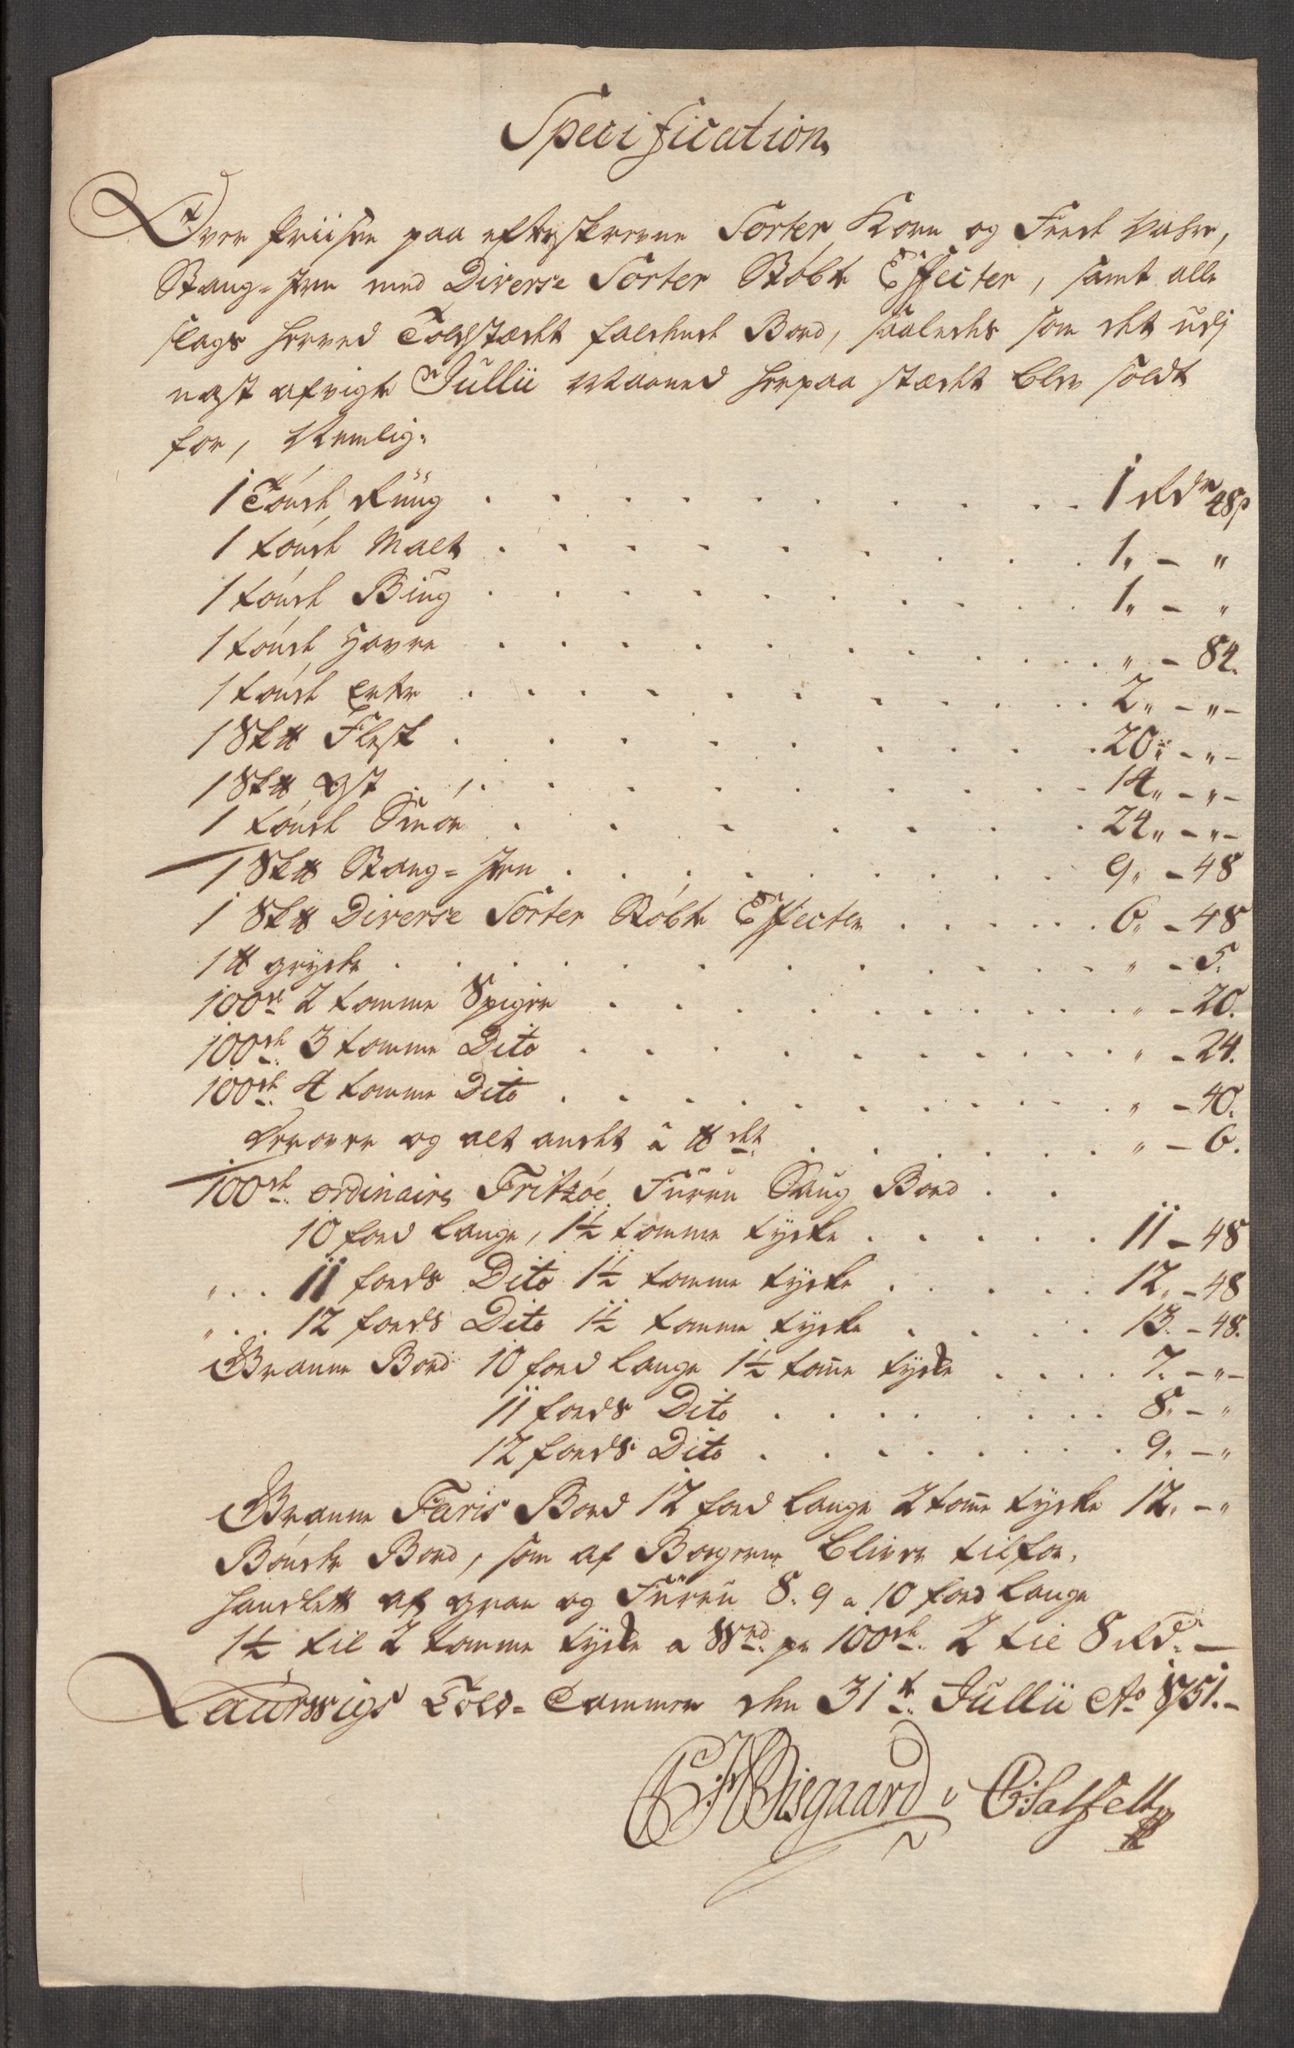 Specification
Over Priisen paa efterskrevne Sorter Korn og Feed Vahre,
Stang-Jern med Diverse Sorter Støbte Effecter, samt alle
slags herved Toldstædet faldende Bord, saaledes som det udj
nest afvigte Jullii Maaned her paa stædet blev soldt
for, Nemlig:
1 Tønde Rüüg . . . . . . . . . 1 Rdr 48 s
1 tønde Malt . . . . . . . . . 1„ – „
1 tønde Biug . . . . . . . . . 1„ – „
1 tønde Havre . . . . . . . . . „ – 84.
1 tønde Erter . . . . . . . . . 2„ – „ –
1 Sk℔ Flesk . . . . . . . . . 20„ – „ –
1 Sk℔ Ost . . . . . . . . . 14„ – „ –
1 tønde Smør . . . . . . . . . 24„ – „ –
1 Sk℔ Stang-Jern . . . . . . . . . 9„ – 48
1 Sk℔ Diverse Sorter Støbte Effecter . . . . . . 6„ – 48
1 ℔ gryde . . . . . . . . . „ – 5.
100de 2 tomme Spiger . . . . . . . . . „ – 20.
100de 3 tomme Dito . . . . . . . . . „ – 24.
100de 4 tomme Dito . . . . . . . . . „ – 40.
og alt andet â ℔ det . . . . . . „ – 6.
100de ordinaire Fritzøe Furru Saug Bord . .
10 fod lange, 1½ tomme tycke . . . . . 11 – 48
„ . . 11 fods Dito 1½ tomme tycke . . . . . 12„ – 48
„ . . 12 fods Dito 1½ tomme tycke . . . . . 13. – 48.
Granne Bord 10 fod lange 1½ tomme tycke . . . . 7. – „ –
11 fods Dito . . . . . . . . 8„ – „
12 fods Dito . . . . . . . . 9„ – „
Granne Faris Bord 12 fod lange 2 tomme tycke 12„ – „
Bønder Bord, som af Borgerne bliver tilfor,
handlett af gran og Furru 8. 9 a 10 fod lange
1½ til 2 tomme tycke a pr 100de 2 til 8 Rd. –
Laurwigs Told-Cammer den 31te Jullii Ao 1751. –
Wisgaard C: Salfelt